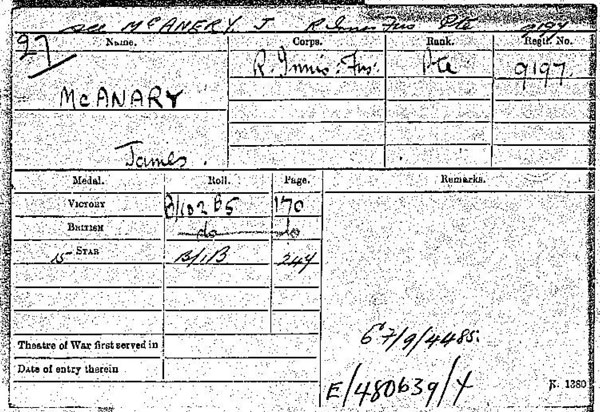 see McANERY. J R Innis Fus Pte 9197
27
Name. Corps. Rank. Regtl. No.
R. Innis: Fus: Pte 9197.
McANARY
James.
Medal. Roll. Page. Remarks.
VICTORY B/102 B5 170
BRITISH do do
15 STAR B/1/B 244
6 7/9/4485.
Theatre of War first served in
Date of entry therein
E/480639/Y K. 1380